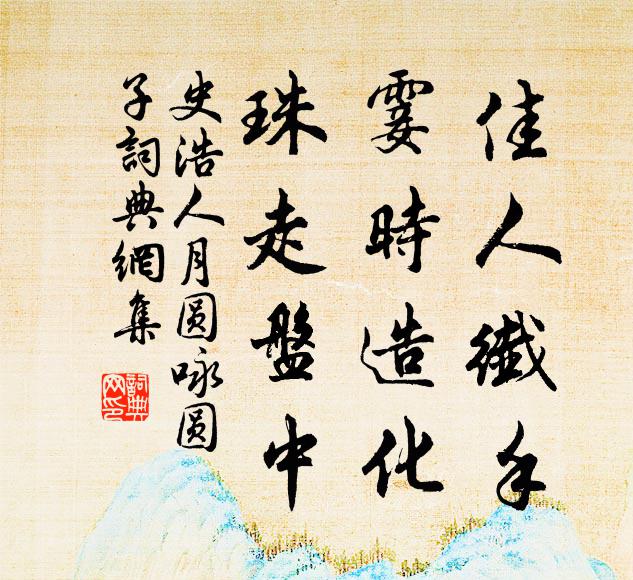 佳人纖手
霎時造化
珠走盤中
史浩人月圓咏圓
子詞典網集
詞典
网印